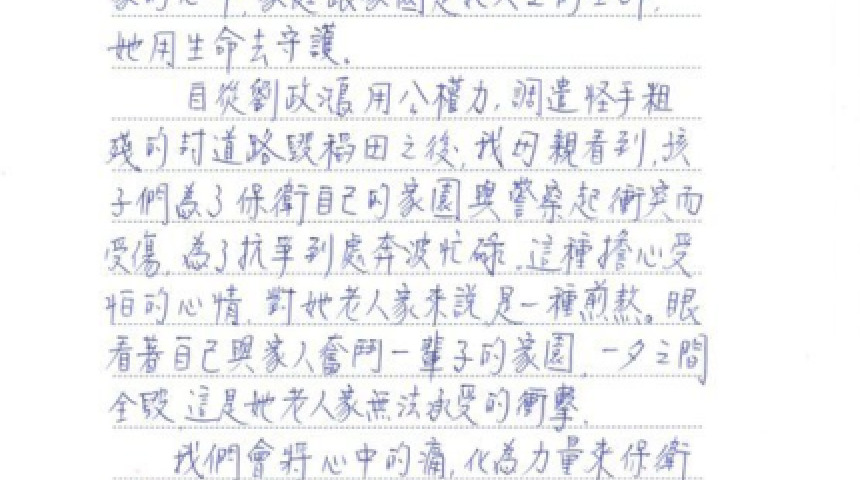 她用生命去守護。
自從劉政鴻用公權力,調遣怪手粗
殘的封道路毀稻田之後,我母親看到,孩
子們為了保衛自己的家園與警察起衝突而
受傷,為了抗爭到處奔波忙碌,這種擔心受
怕的心情,對她老人家來說是一種煎熬。眼
看著自己與家人奮鬥一輩子的家園,一夕之間
全毀,這是她老人家無法承受的衝擊,
我們會將心中的痛,化為力量來保衛